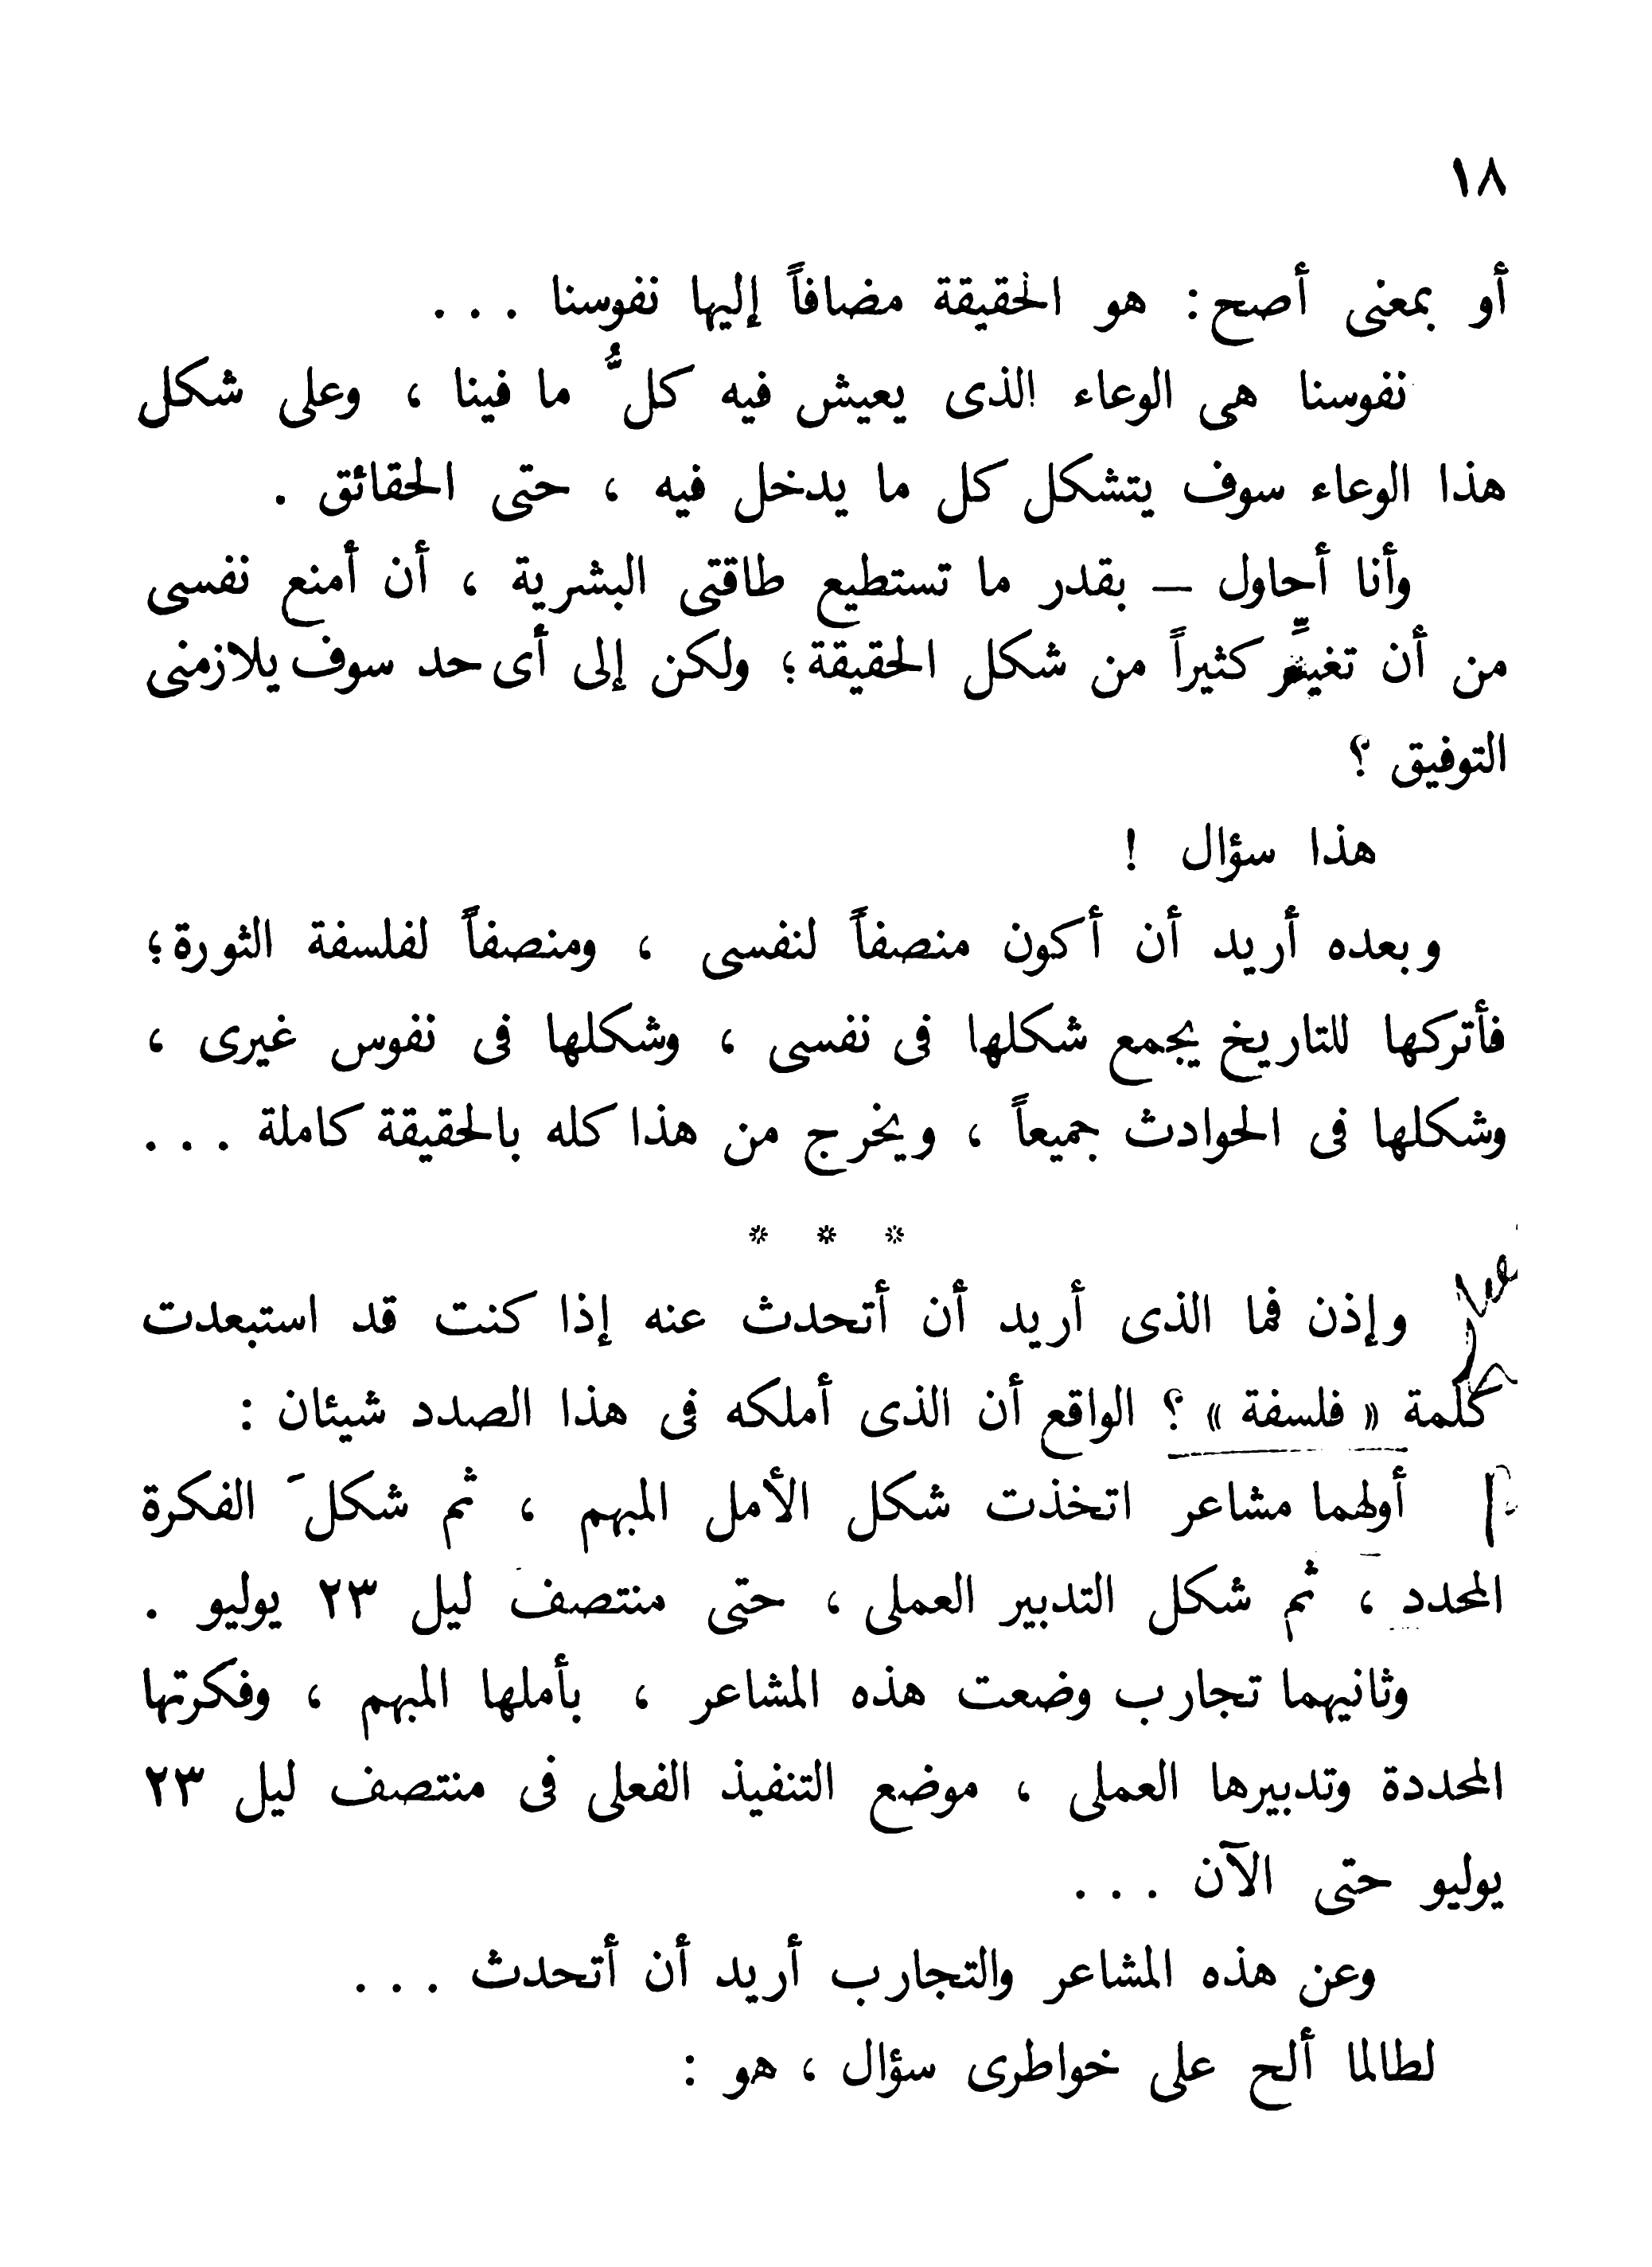 ١٨
أو بمعنى أصح: هو الحقيقة مضافاً إليها نفوسنا . . .
نفوسنا هى الوعاء الذى يعيش فيه كلُّ ما فينا ، وعلى شكل
هذا الوعاء سوف يتشكل كل ما يدخل فيه ، حتى الحقائق .
وأنا أحاول – بقدر ما تستطيع طاقتى البشرية ، أن أمنع نفسى
من أن تغيِّر كثيراً من شكل الحقيقة؛ ولكن إلى أى حد سوف يلازمنى
التوفيق ؟
هذا سؤال !
وبعده أريد أن أكون منصفاً لنفسى ، ومنصفاً لفلسفة الثورة؛
فأتركها للتاريخ يجمع شكلها فى نفسى ، وشكلها فى نفوس غيرى ،
وشكلها فى الحوادث جميعاً ، ويخرج من هذا كله بالحقيقة كاملة . . .
* * *
وإذن فما الذى أريد أن أتحدث عنه إذا كنت قد استبعدت
كلمة « فلسفة » ؟ الواقع أن الذى أملكه فى هذا الصدد شيئان :
أولهما مشاعر اتخذت شكل الأمل المبهم ، ثم شكلَ الفكرة
المحدد ، ثم شكل التدبير العملى ، حتى منتصف ليل ٢٣ يوليو .
وثانيهما تجارب وضعت هذه المشاعر ، بأملها المبهم ، وفكرتها
المحددة وتدبيرها العملى ، موضع التنفيذ الفعلى فى منتصف ليل ٢٣
يوليو حتى الآن . . .
وعن هذه المشاعر والتجارب أريد أن أتحدث . . .
لطالما ألح على خواطرى سؤال ، هو :